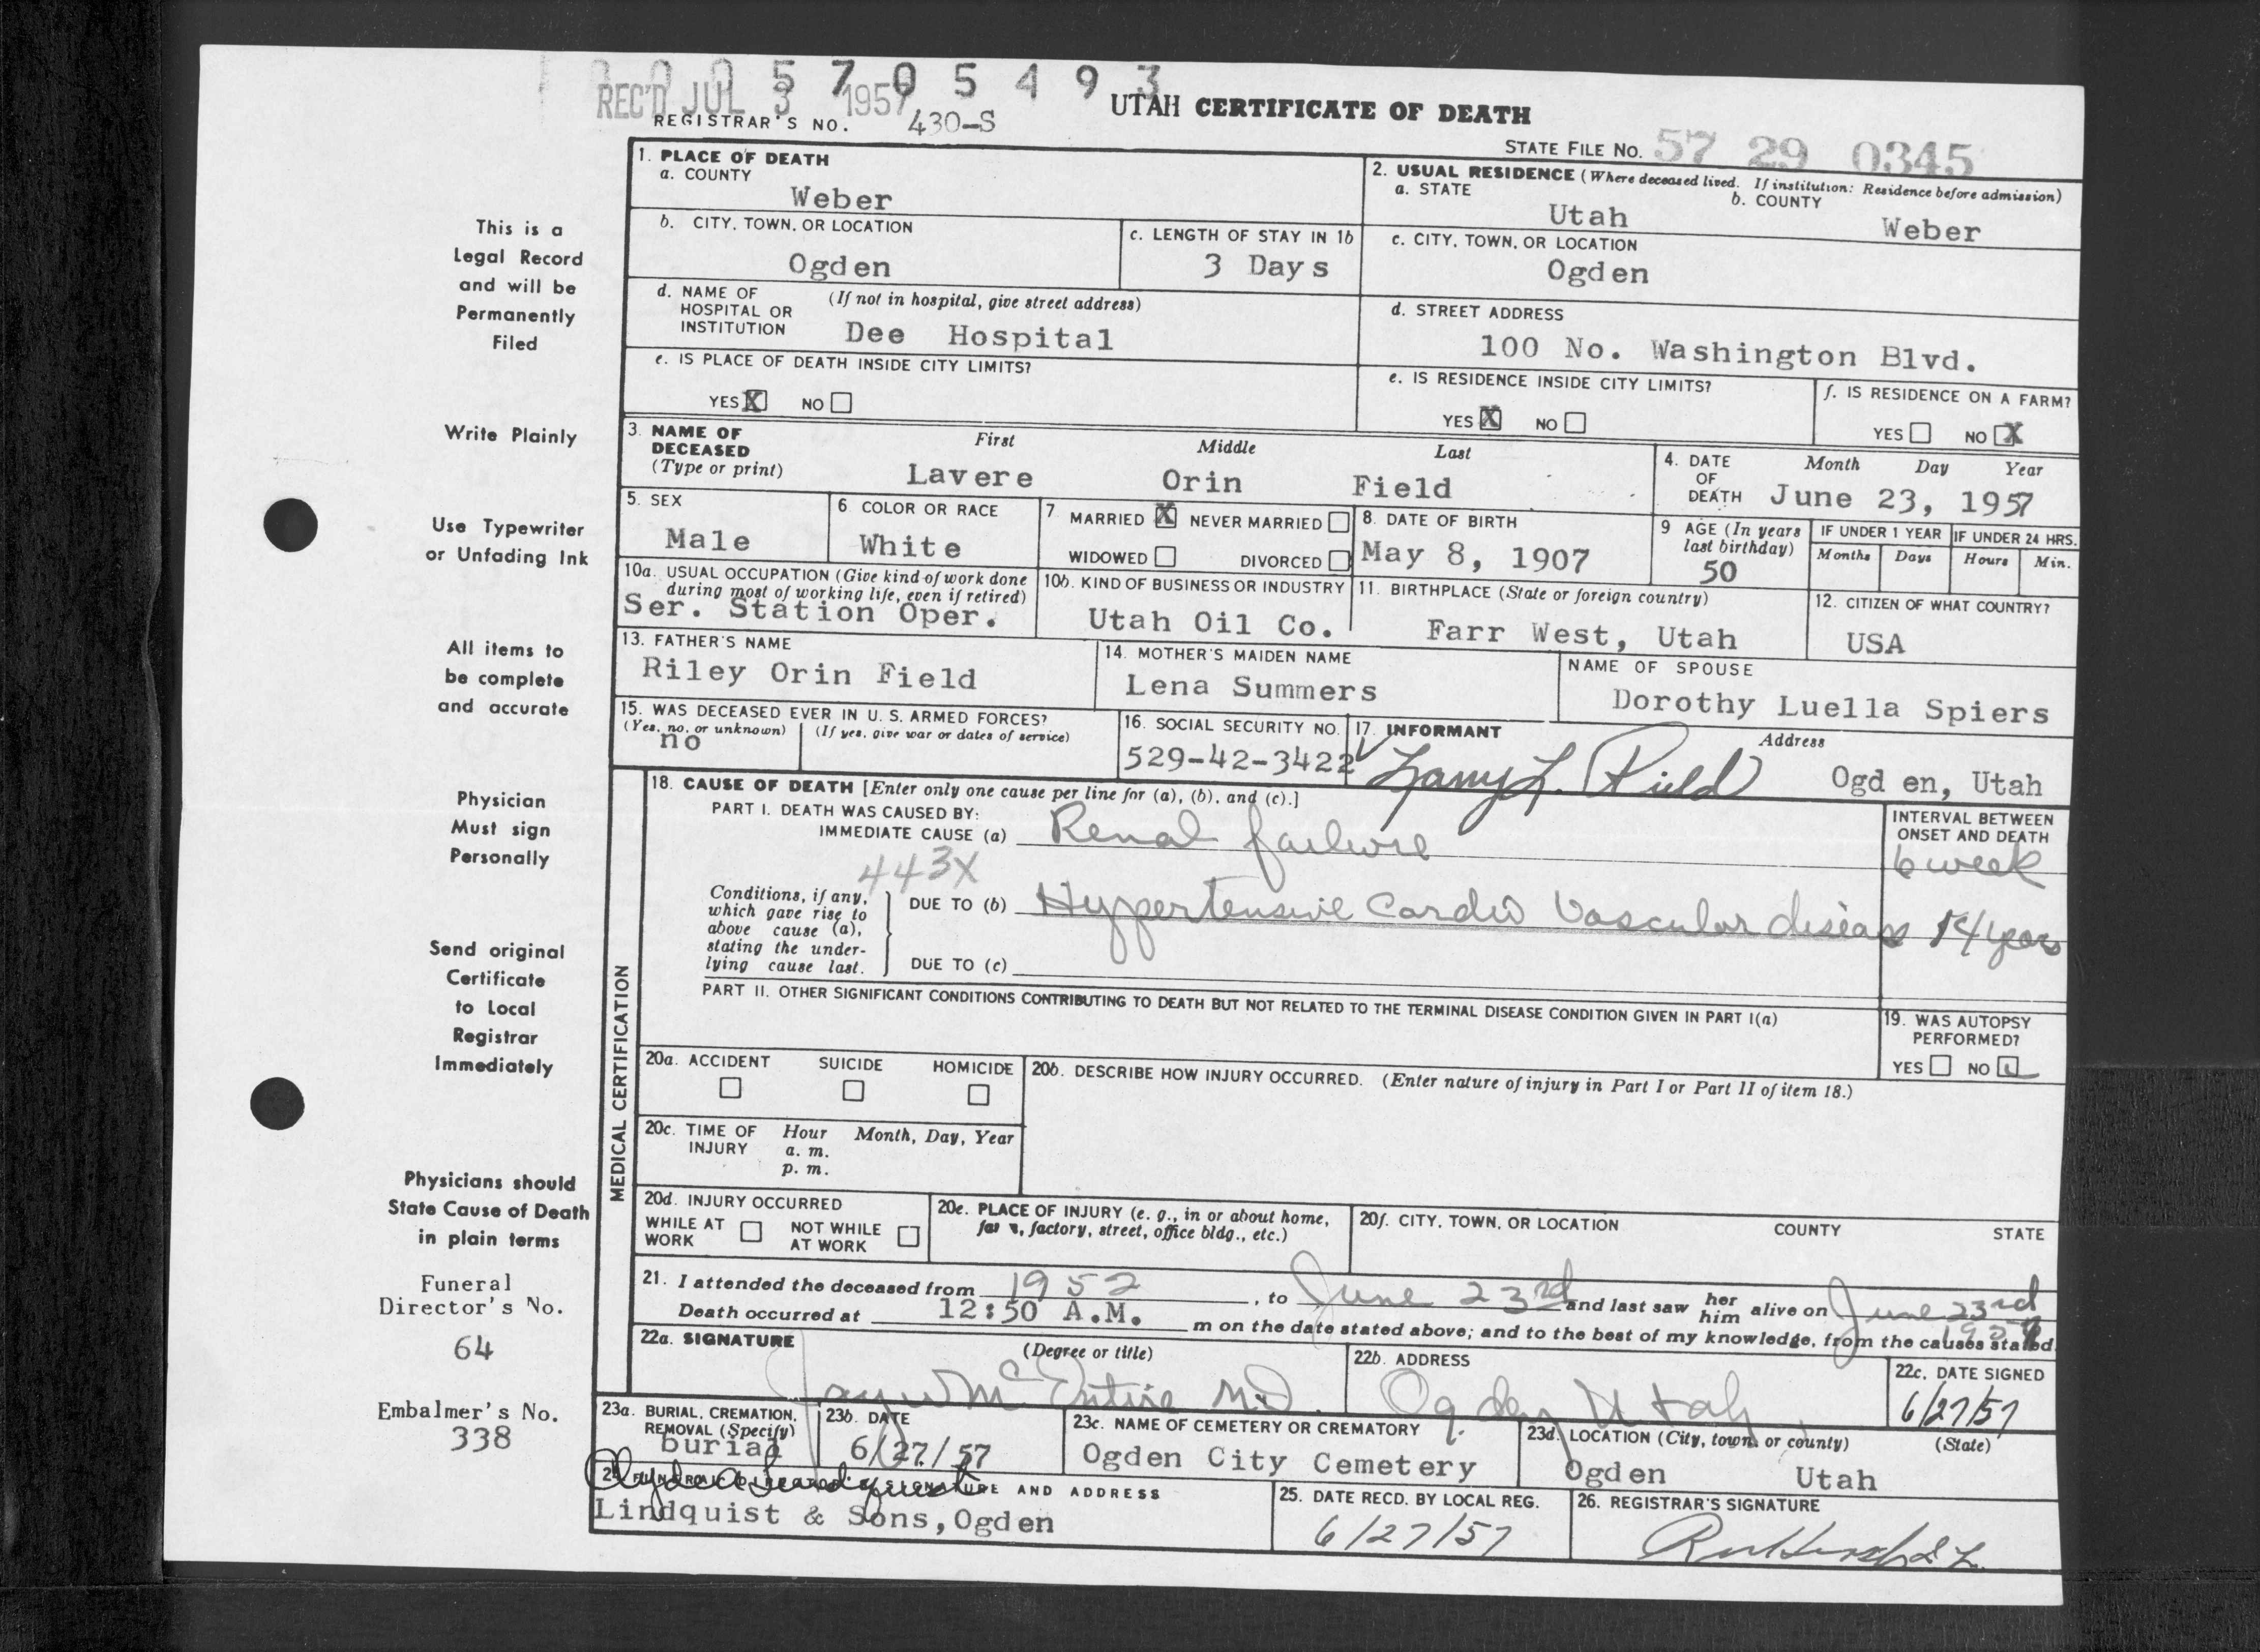 0 0 0 5 7 0 5 4 9 3
REC'D JUL 3 1957
REGISTRAR'S NO. 430-S
UTAH CERTIFICATE OF DEATH
STATE FILE NO. 57 29 0345
This is a
Legal Record
and will be
Permanently
Filed
Write Plainly
Use Typewriter
or Unfading Ink
All items to
be complete
and accurate
Physician
Must sign
Personally
Send original
Certificate
to Local
Registrar
Immediately
Physicians should
State Cause of Death
in plain terms
Funeral
Director's No.
64
Embalmer's No.
338
1. PLACE OF DEATH
a. COUNTY
Weber
2. USUAL RESIDENCE (Where deceased lived. If institution: Residence before admission)
a. STATE Utah b. COUNTY Weber
b. CITY, TOWN, OR LOCATION
Ogden
c. LENGTH OF STAY IN 1b
3 Days
c. CITY, TOWN, OR LOCATION
Ogden
d. NAME OF HOSPITAL OR INSTITUTION (If not in hospital, give street address)
Dee Hospital
d. STREET ADDRESS
100 No. Washington Blvd.
e. IS PLACE OF DEATH INSIDE CITY LIMITS?
YES X NO
e. IS RESIDENCE INSIDE CITY LIMITS?
YES X NO
f. IS RESIDENCE ON A FARM?
YES NO X
3. NAME OF DECEASED (Type or print)
First Middle Last
Lavere Orin Field
4. DATE OF DEATH Month Day Year
June 23, 1957
5. SEX
Male
6. COLOR OR RACE
White
7 MARRIED X NEVER MARRIED
WIDOWED DIVORCED
8. DATE OF BIRTH
May 8, 1907
9 AGE (In years last birthday)
50
IF UNDER 1 YEAR IF UNDER 24 HRS.
Months Days Hours Min.
10a. USUAL OCCUPATION (Give kind of work done during most of working life, even if retired)
Ser. Station Oper.
10b. KIND OF BUSINESS OR INDUSTRY
Utah Oil Co.
11. BIRTHPLACE (State or foreign country)
Farr West, Utah
12. CITIZEN OF WHAT COUNTRY?
USA
13. FATHER'S NAME
Riley Orin Field
14. MOTHER'S MAIDEN NAME
Lena Summers
NAME OF SPOUSE
Dorothy Luella Spiers
15. WAS DECEASED EVER IN U. S. ARMED FORCES?
(Yes, no, or unknown) (If yes, give war or dates of service)
no
16. SOCIAL SECURITY NO.
529-42-3422
17. INFORMANT Address
Larry L. Field Ogden, Utah
MEDICAL CERTIFICATION
18. CAUSE OF DEATH [Enter only one cause per line for (a), (b), and (c).]
PART I. DEATH WAS CAUSED BY:
IMMEDIATE CAUSE (a) Renal failure
INTERVAL BETWEEN ONSET AND DEATH
6 week
443X
Conditions, if any, which gave rise to above cause (a), stating the underlying cause last.
DUE TO (b) Hypertensive Cardio Vascular disease 14 years
DUE TO (c)
PART II. OTHER SIGNIFICANT CONDITIONS CONTRIBUTING TO DEATH BUT NOT RELATED TO THE TERMINAL DISEASE CONDITION GIVEN IN PART I(a)
19. WAS AUTOPSY PERFORMED?
YES NO
20a. ACCIDENT SUICIDE HOMICIDE
20b. DESCRIBE HOW INJURY OCCURRED. (Enter nature of injury in Part I or Part II of item 18.)
20c. TIME OF INJURY Hour Month, Day, Year
a. m.
p. m.
20d. INJURY OCCURRED
WHILE AT WORK NOT WHILE AT WORK
20e. PLACE OF INJURY (e. g., in or about home, farm, factory, street, office bldg., etc.)
20f. CITY, TOWN, OR LOCATION COUNTY STATE
21. I attended the deceased from 1952, to June 23rd and last saw her him alive on June 23rd 1957
Death occurred at 12:50 A.M. m on the date stated above; and to the best of my knowledge, from the causes stated.
22a. SIGNATURE (Degree or title)
Jay W McEntire M.D.
22b. ADDRESS
Ogden Utah
22c. DATE SIGNED
6/27/57
23a. BURIAL, CREMATION, REMOVAL (Specify)
burial
23b. DATE
6/27/57
23c. NAME OF CEMETERY OR CREMATORY
Ogden City Cemetery
23d. LOCATION (City, town, or county) (State)
Ogden Utah
24. FUNERAL DIRECTOR'S SIGNATURE AND ADDRESS
Clyde A Lindquist
Lindquist & Sons, Ogden
25. DATE RECD. BY LOCAL REG.
6/27/57
26. REGISTRAR'S SIGNATURE